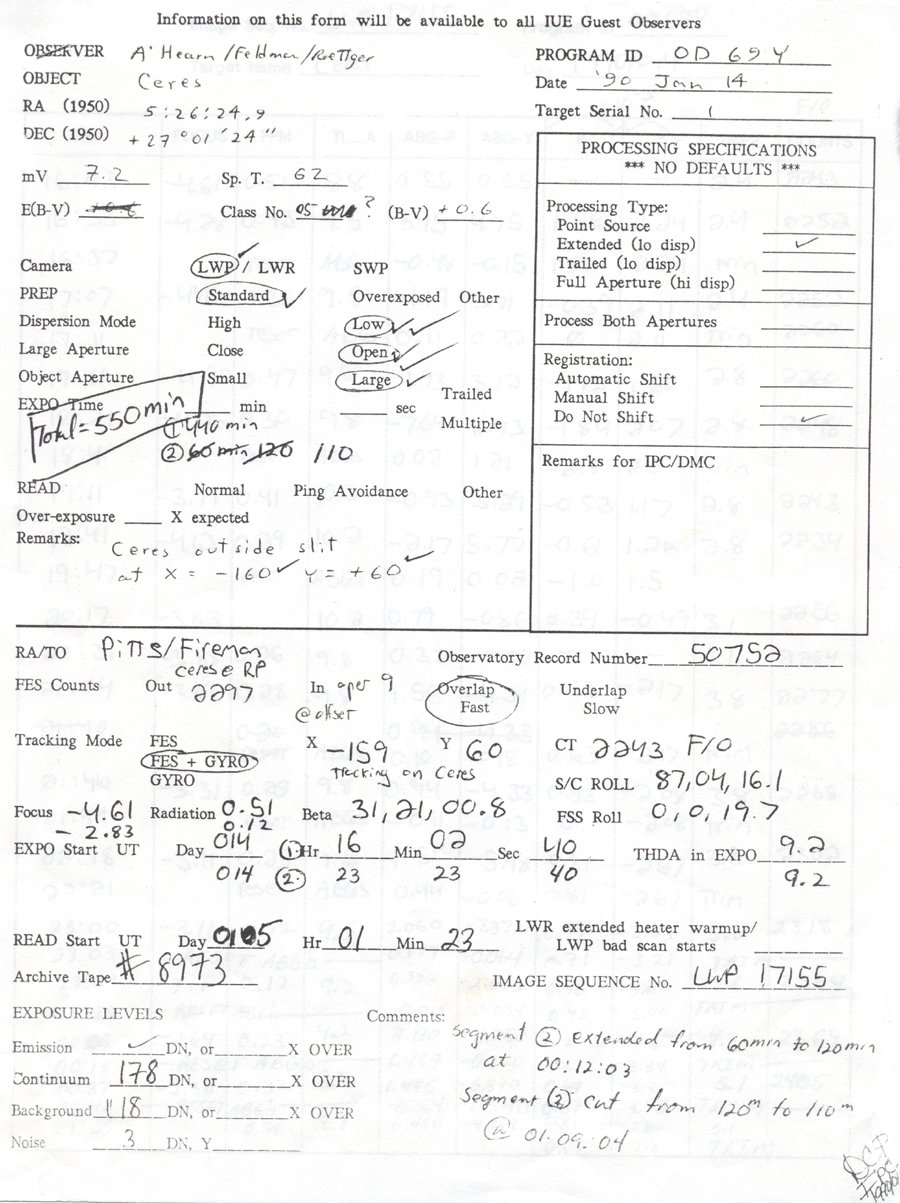 Information on this form will be available to all IUE Guest Observers
OBSERVER A'Hearn/Feldman/Roettger
OBJECT Ceres
RA (1950) 5:26:24.9
DEC (1950) +27° 01' 24"
PROGRAM ID OD69Y
Date '90 Jan 14
Target Serial No. 1
mV 7.2 Sp. T. G2
E(B-V) +0.6 Class No. 05 ? (B-V) +0.6
Camera LWP / LWR SWP
PREP Standard Overexposed Other
Dispersion Mode High Low
Large Aperture Close Open
Object Aperture Small Large
Trailed
EXPO Time min sec
Multiple
Total = 550 min
① 440 min
② 60 min 120 110
READ Normal Ping Avoidance Other
Over-exposure X expected
Remarks: Ceres outside slit
at X = -160 Y = +60
PROCESSING SPECIFICATIONS
*** NO DEFAULTS ***
Processing Type:
Point Source
Extended (lo disp) ✓
Trailed (lo disp)
Full Aperture (hi disp)
Process Both Apertures
Registration:
Automatic Shift
Manual Shift
Do Not Shift ✓
Remarks for IPC/DMC
RA/TO Pitts/Fireman Observatory Record Number 50752
Ceres @ RP
FES Counts Out 2297 In aper 9 Overlap Underlap
@ offset Fast Slow
Tracking Mode FES X -159 Y 60 CT 2243 F/O
FES + GYRO tracking on Ceres
GYRO S/C ROLL 87,04,16.1
Focus -4.61 Radiation 0.51 Beta 31,21,00.8 FSS Roll 0,0,19.7
-2.83 0.12
EXPO Start UT Day 014 ① Hr 16 Min 02 Sec 40 THDA in EXPO 9.2
014 ② 23 23 40 9.2
READ Start UT Day 015 Hr 01 Min 23 LWR extended heater warmup/
LWP bad scan starts
Archive Tape # 8973 IMAGE SEQUENCE No. LWP 17155
EXPOSURE LEVELS Comments:
Emission ✓ DN, or X OVER
Continuum 178 DN, or X OVER
Background 118 DN, or X OVER
Noise 3 DN, Y
Segment ② Extended from 60min to 120min
at 00:12:03
Segment ② Cut from 120m to 110m
@ 01:09:04